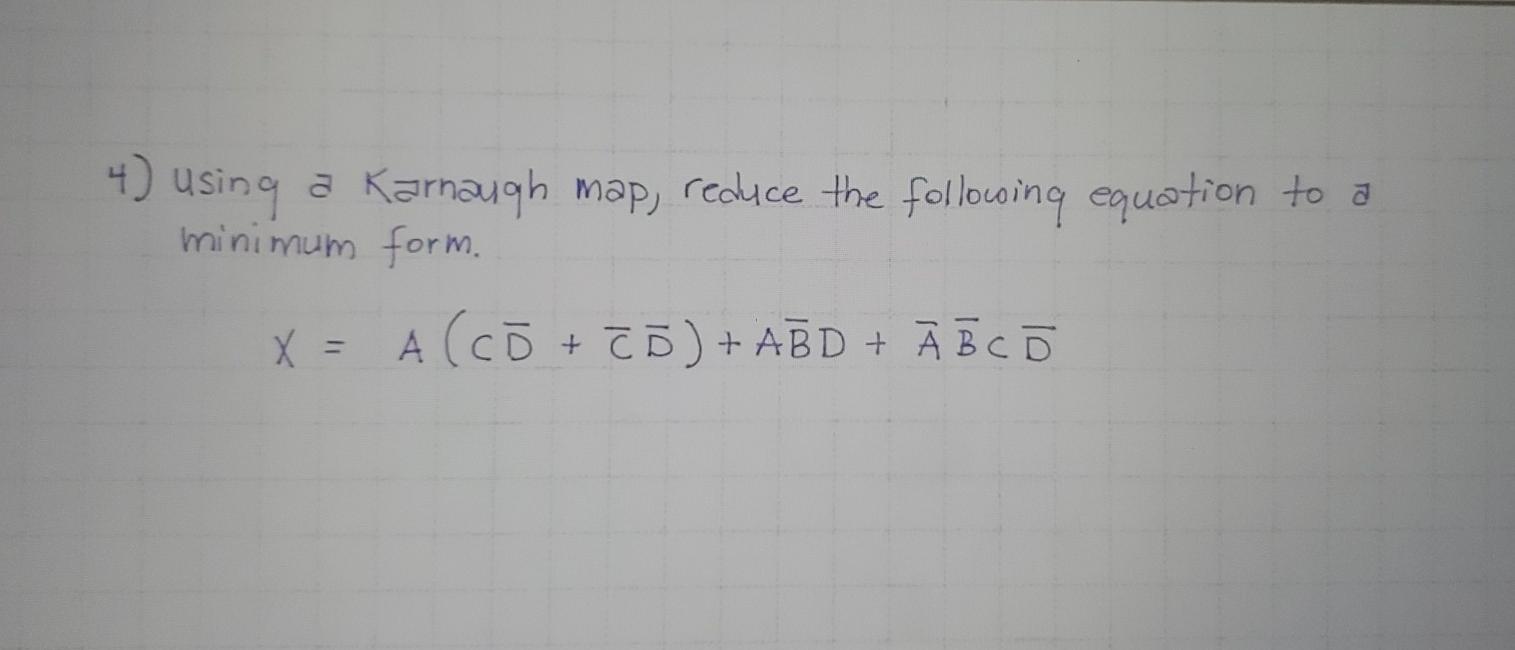 4) Using a Karnaugh map, reduce the following equation to a
minimum form.
X = A (CD̅ + C̅ D̅) + AB̅D + A̅ B̅ C D̅